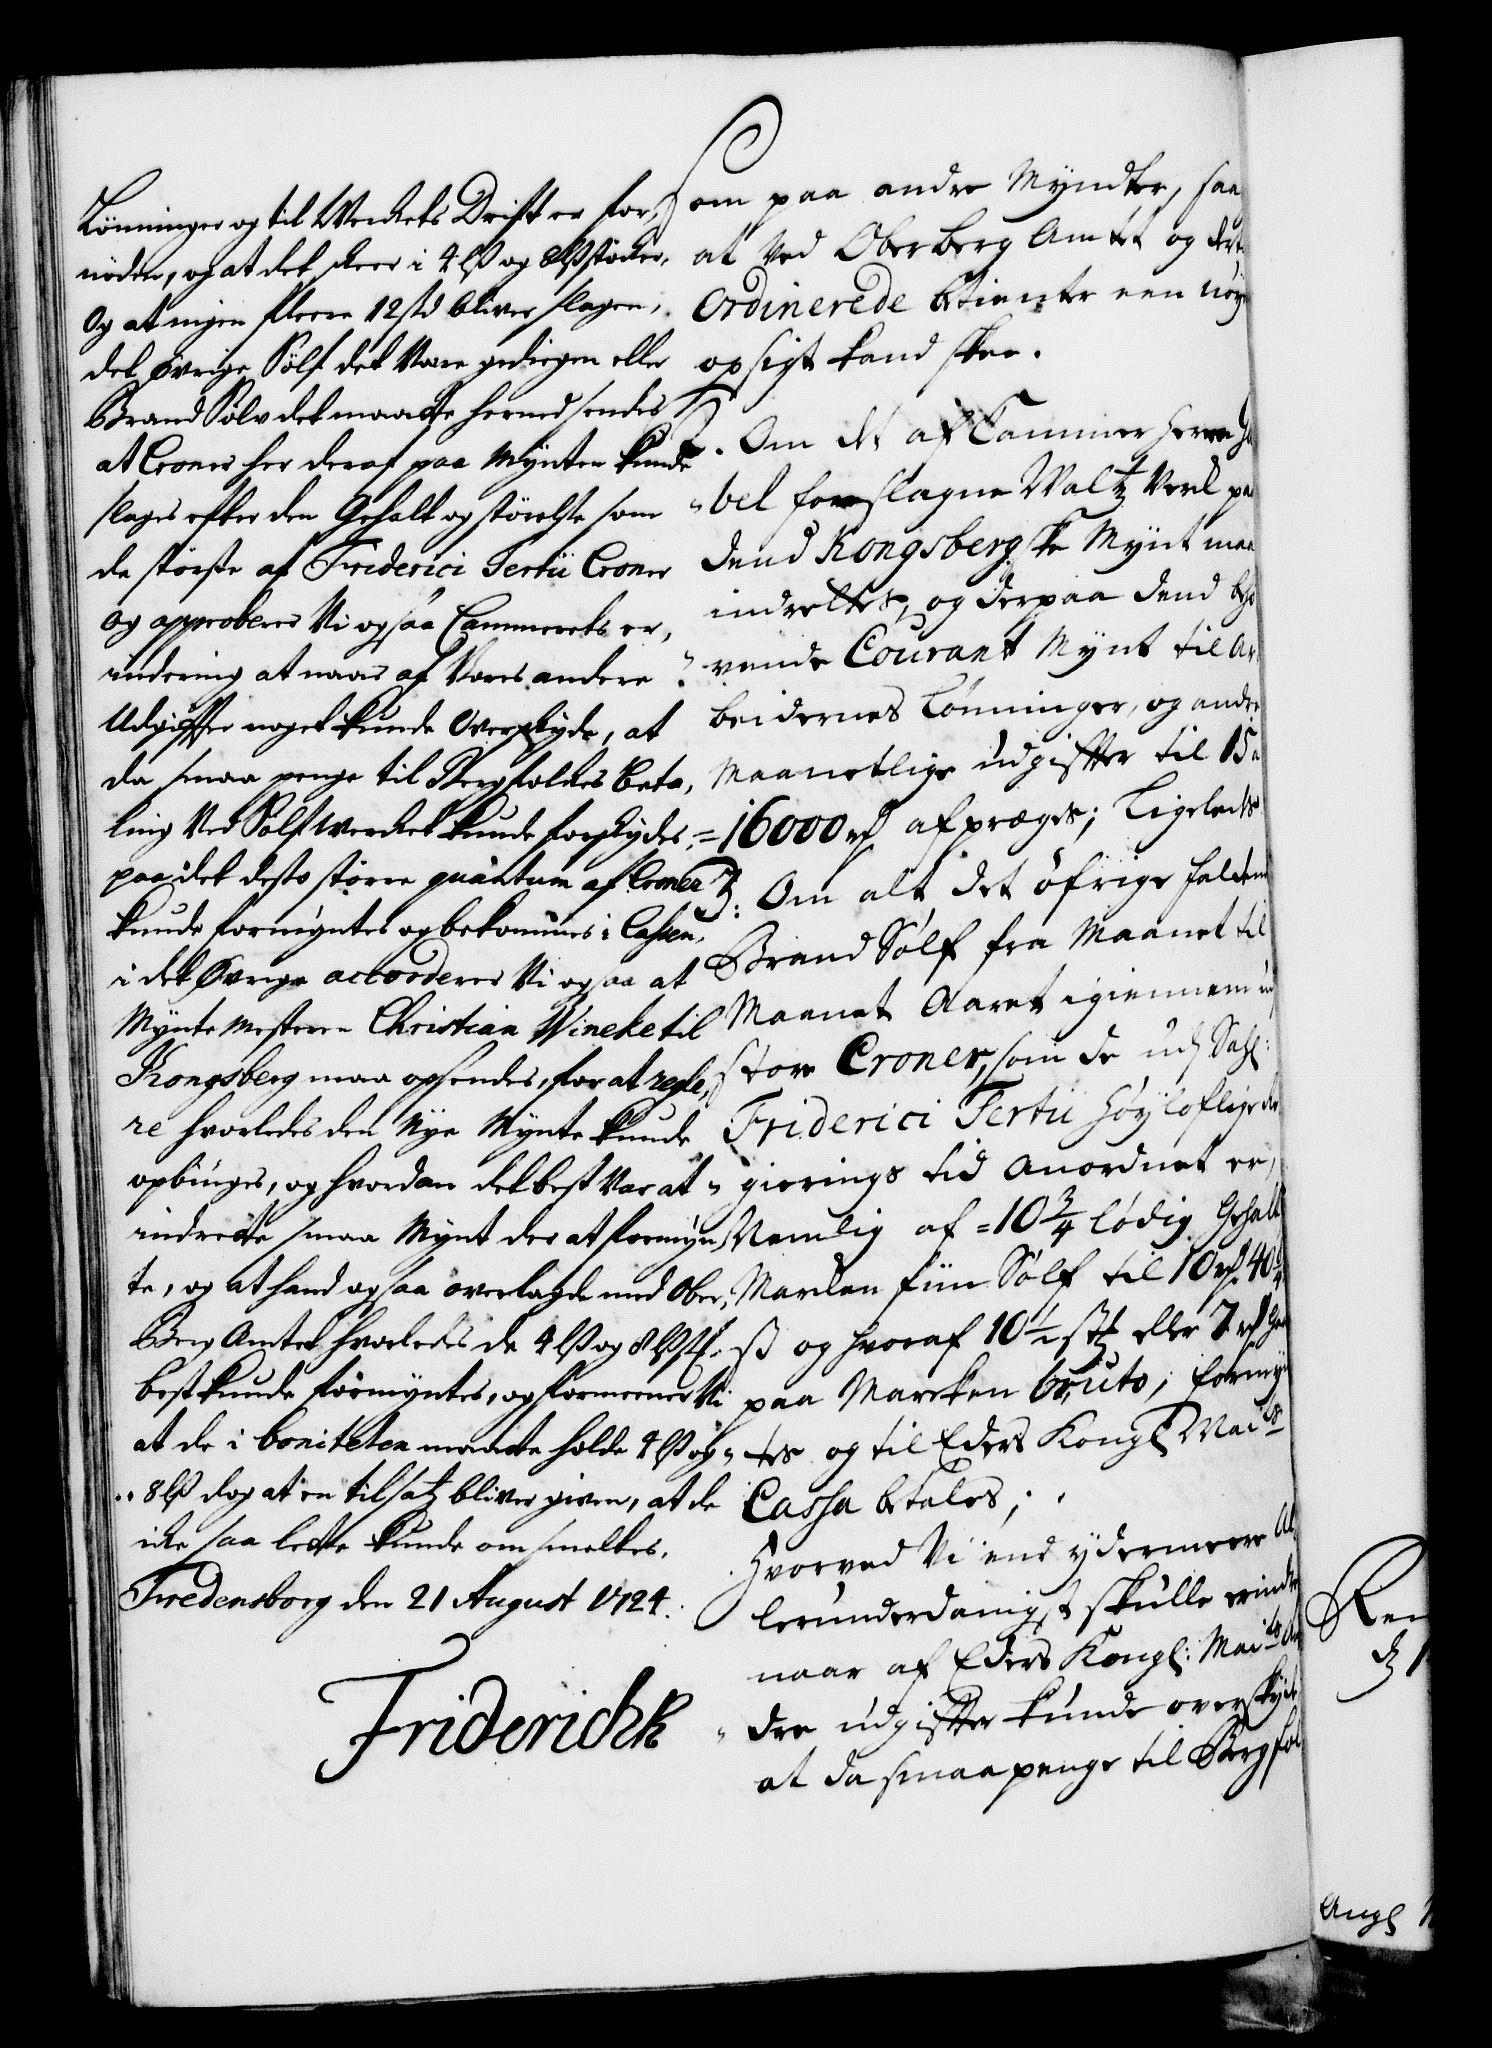 Lønninger og til Werckets Drift er for,
nøden, og at det skeer i 4 lß og 8 lß støcker,
Og at ingen fleere 12 sk bliver slagen,
det øvrige Sølf det Være gediegen eller
Brand Sølv det maatte herned sendes
at Croner her deraf paa Mynten kunde
slages efter den Gehalt og størelse som
de største af Friderici Tertii Croner
og approberer Vi ogsaa Cammerets er,
indering at naar af Vores andere
Udgifter noget kunde Overskyde, at
da smaa penge til Bergfolckes beta,
ling Ved Sølf Wercket kunde forskydes,
paa det desto større quantum af Croner
kunde formyntes og bekommes i Cassen,
i det Øvrige accorderer Vi ogsaa at
Mynte Mesteren Christian Wineke til
Kongsberg maa opsendes, for at regle,
re hvorledes den Nye Mynte kunde
opbÿnges, og hvordan det best Var at
indrette smaa Mynt der at formyn,
te, og at hand ogsaa overlagde med Ober,
Berg Amtet hvorledes de 4 lß og 8 lß st:
best kunde formyntes, og formeener Vi
at de i boniteten maatte holde 4 lß og
8 lß dog at en tilsatz bliver given, at de
icke saa lette kunde omsmeltes.
Fredensborg den 21 August 1724.
Friderich R
Som paa andre Myndter, saa
at Ved OberBerg Amtet og
Ordinerede betiente een
opsigt kand skee.
2. Om det af Cammer Herre
bel foreslagne Waltz Verck
dend Kongsbergske Mynt
indrettes, og derpaa dend
vende Courant Mynt til Ar,
beidernes Lønninger, og andre
Maanetlige udgifter til 15 a
16000 rd afpræges; Ligeledes
3: Om alt det øfrige
Brand Sølf fra Maanet til
Maanet Aaret igiennem
store Croner, som de udj Sahl:
Friderici Tertii Høyloflige
gierings tid anordnet er,
Nemlig af 10 3/4 lødig Gehalt
Marcken fiin Sølf til 10 rd 40
ß og hvoraf 10 1/2 st: eller 7 rd
paa Marcken bruto, formyn
tes og til Eders Kongl Maits
Cassa betales;
Hvorved Vi end ydermeere Al,
lerunderdanigst skulle erindre
naar af Eders Kongl: Maits
dre udgifter kunde overskyde
at da smaa penge til Bergfol